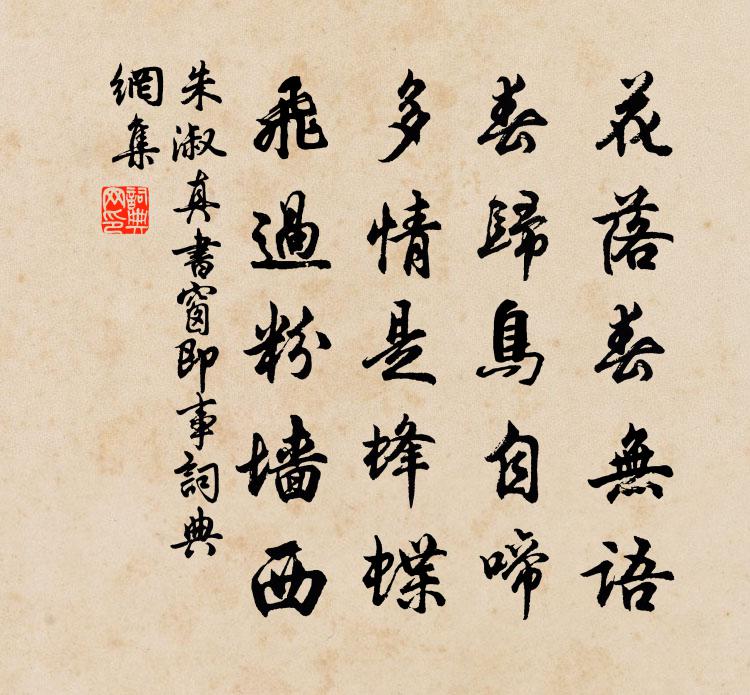 花落春無語
春歸鳥自啼
多情是蜂蝶
飛過粉墻西
朱淑真書窗即事詞典
網集
詞典
网印